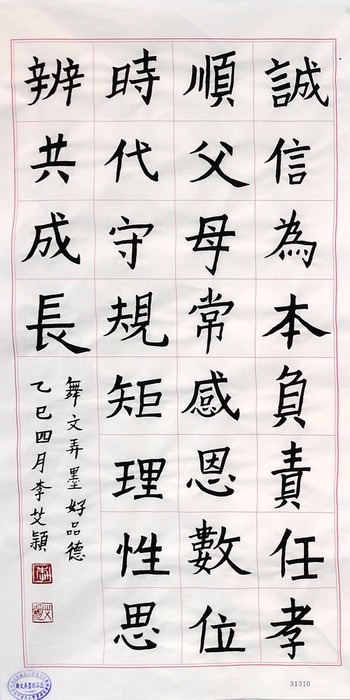 誠信為本負責任孝
順父母常感恩數位
時代守規矩理性思
辨共成長
舞文弄墨好品德
乙巳四月李艾穎
31310